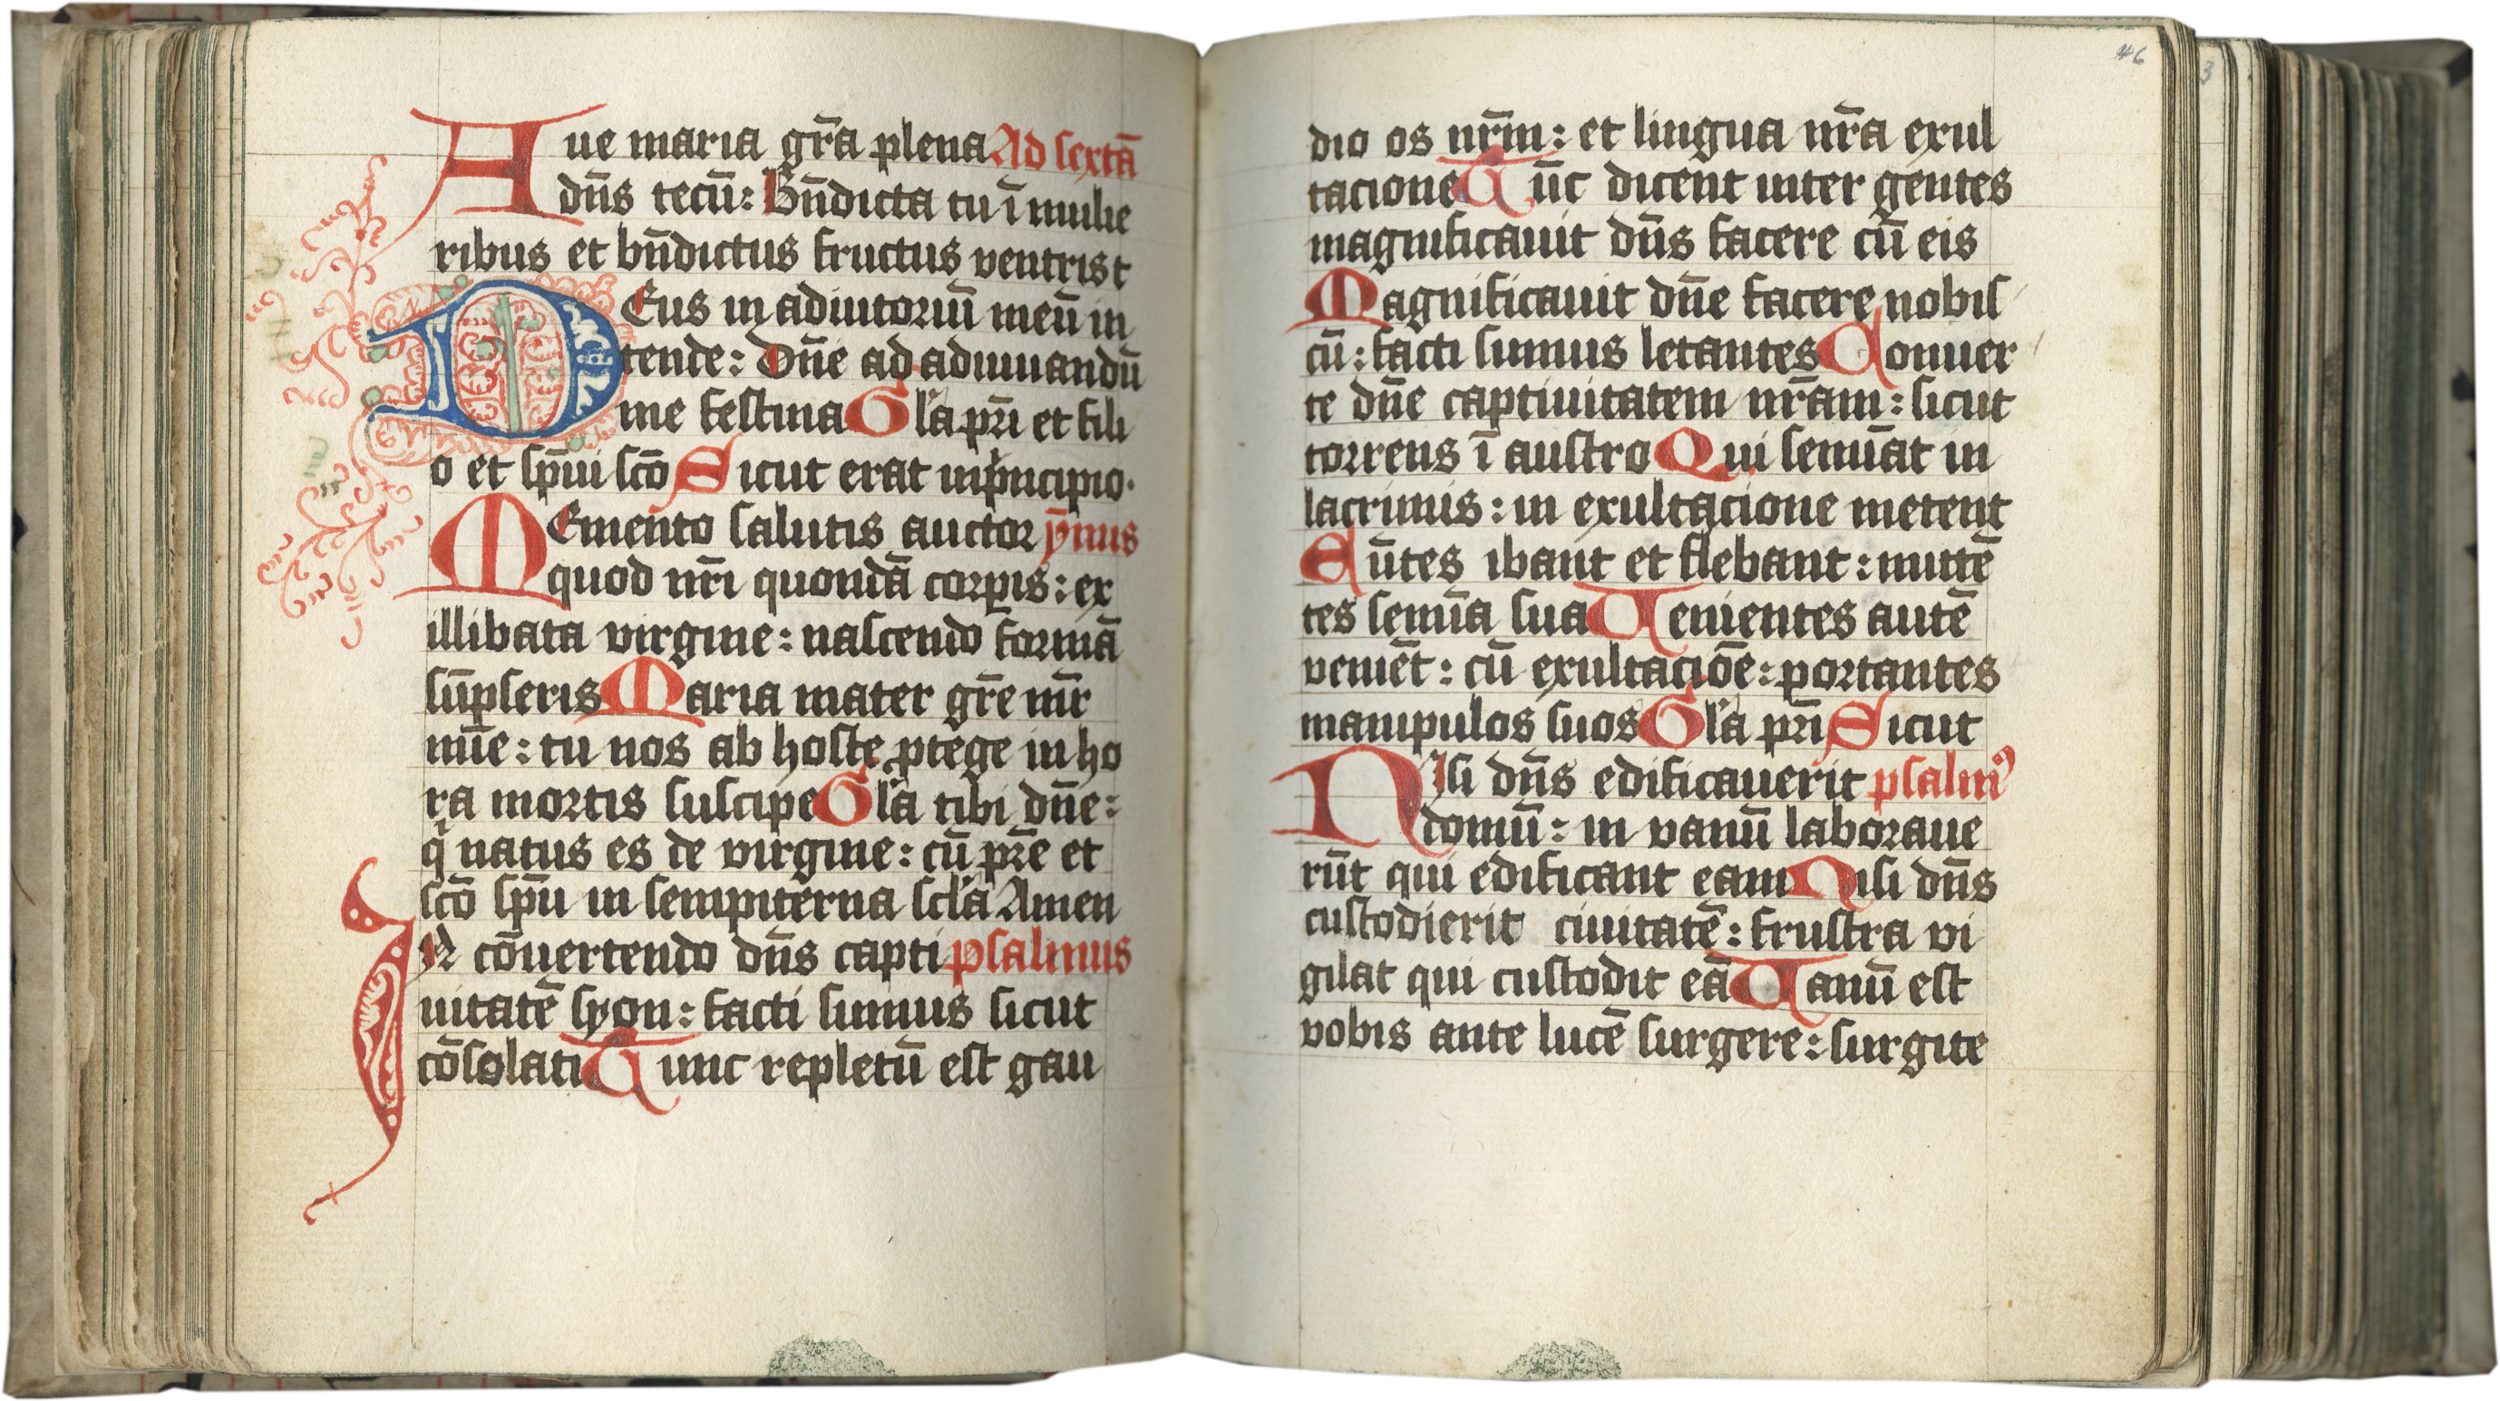 Aue maria gr̄a plena Ad sextā
dn̄s tecū: Bn̄dicta tu ī mulie
ribus et bn̄dictus fructus ventris t
DEus in adiutoriū meū in
tende: Dn̄e ad adiuuandū
me festina Gl'a pr̄i et fili
o et sp̄ui scō Sicut erat inp̍ncipio.
MEmento salutis auctor ȳmnus
quod nr̄i quondā corpīs: ex
illibata virgine: nascendo formā
sūpseris Maria mater gr̄e mr̄
mīe: tu nos ab hoste ꝓtege in ho
ra mortis suscipe Gl'a tibi dn̄e:
qͥ natus es de virgine: cū pr̄e et
scō sp̄u in sempiterna scl'a Amen
IN cōuertendo dn̄s capti psalmus
uitatē syon: facti sumus sicut
cōsolati Tunc repletū est gau
46
dio os nr̄m: et lingua nr̄a exul
tacione Tūc dicent inter gentes
magnificauit dn̄s facere cū eis
Magnificauit dn̄e facere nobis
cū: facti sumus letantes Conuer
te dn̄e captiuitatem nr̄am: sicut
torrens ī austro Qui semīat in
lacrimis: in exultacione metent
Eūtes ibant et flebant: mittē
tes semīa sua Uenientes autē
veniēt: cū exultaciōe: portantes
manipulos suos Gl'a pr̄i Sicut
NIsi dn̄s edificauerit psalmꝰ
domū: in vanū laboraue
rūt qui edificant eam Nisi dn̄s
custodierit ciuitatē: frustra vi
gilat qui custodit eā Uanū est
vobis ante lucē surgere: surgite